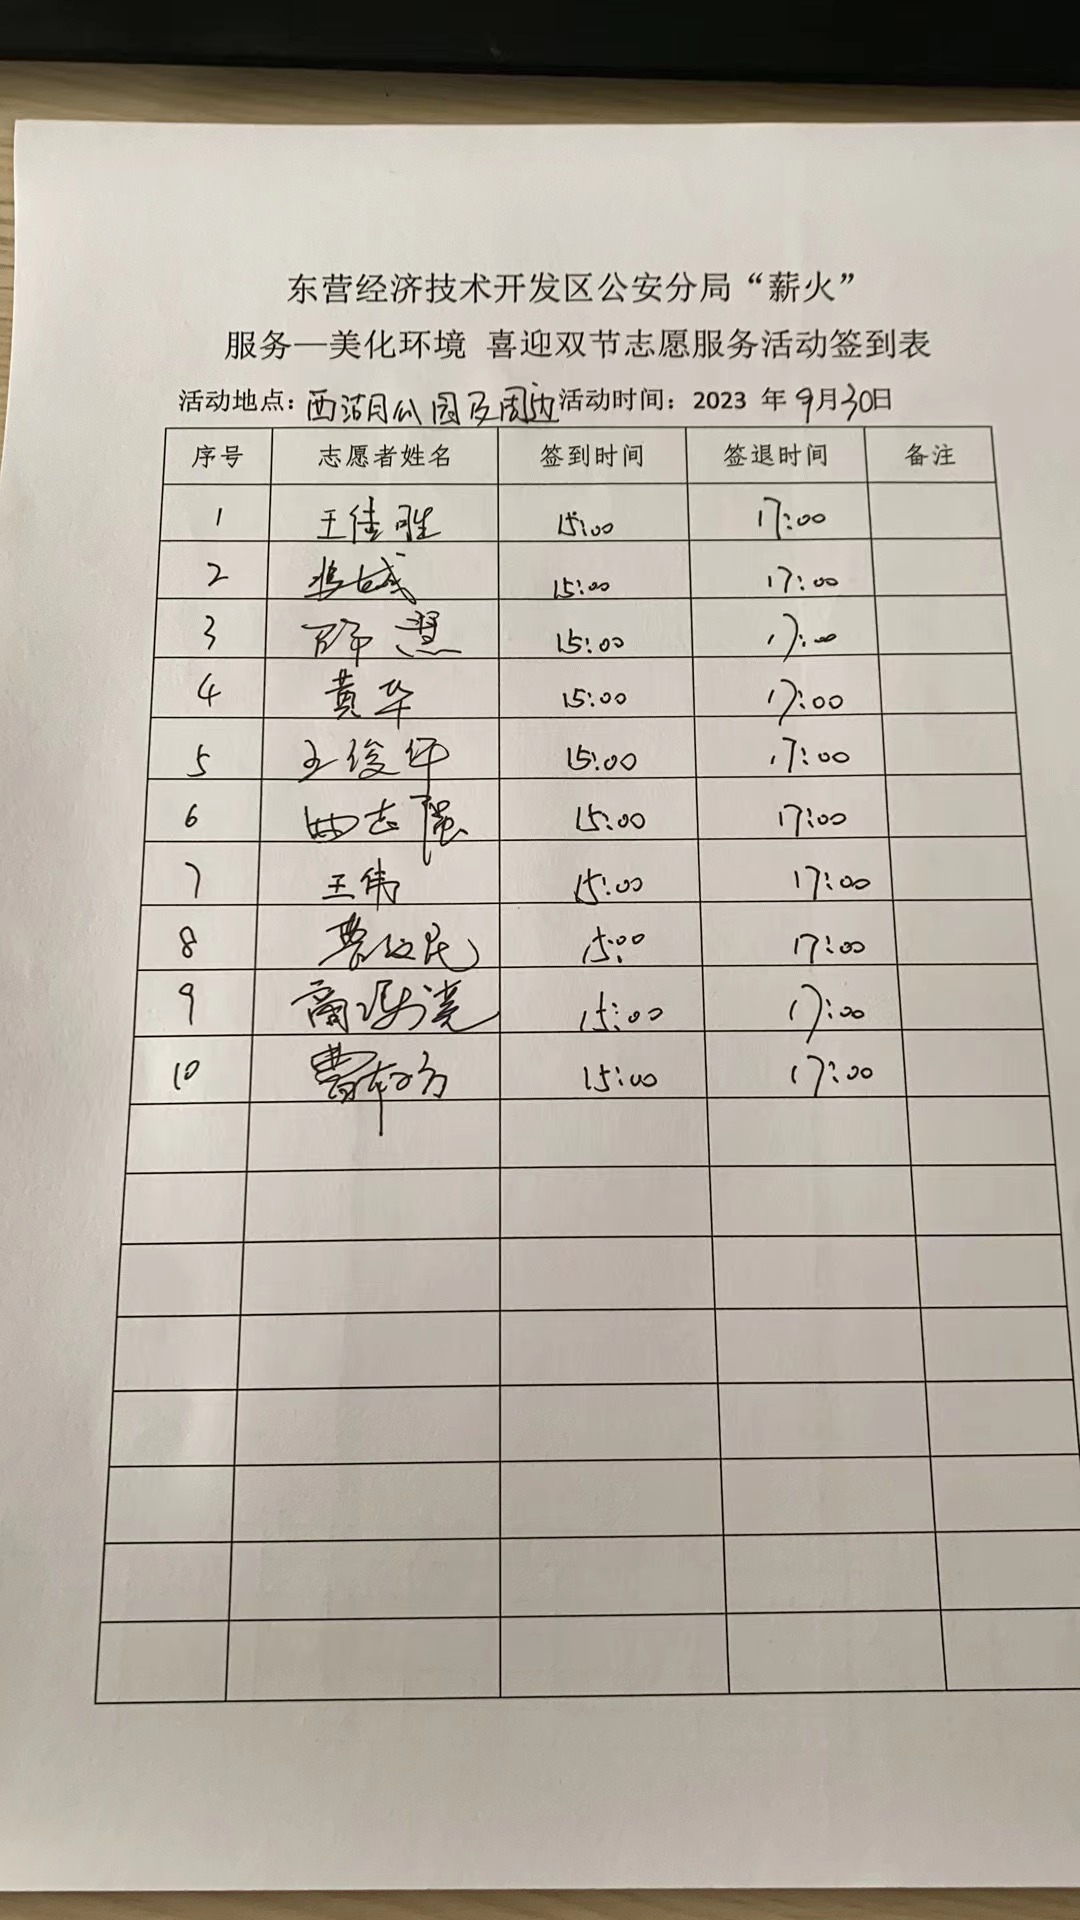 东营经济技术开发区公安分局“薪火”
服务—美化环境 喜迎双节志愿服务活动签到表
活动地点：西湖公园及周边 活动时间：2023 年 9月30日
序号 志愿者姓名 签到时间 签退时间 备注
1 王佳胜 15:00 17:00
2 15:00 17:00
3 薛慧 15:00 17:00
4 黄华 15:00 17:00
5 王俊伟 15:00 17:00
6 志强 15:00 17:00
7 王伟 15:00 17:00
8 民 15:00 17:00
9 商 15:00 17:00
10 曹 15:00 17:00